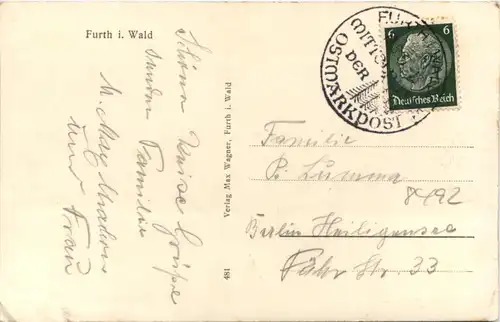 Furth i. Wald
Schöne Reise Grüsse
senden
Familie
und Frau
Verlag Max Wagner, Furth i. Wald
481
FURTH
OSTMARKPOST
DER
6 6
Deutsches Reich
Familie
P. Lumma
8492
Berlin Heiligensee
Fähr Str. 33